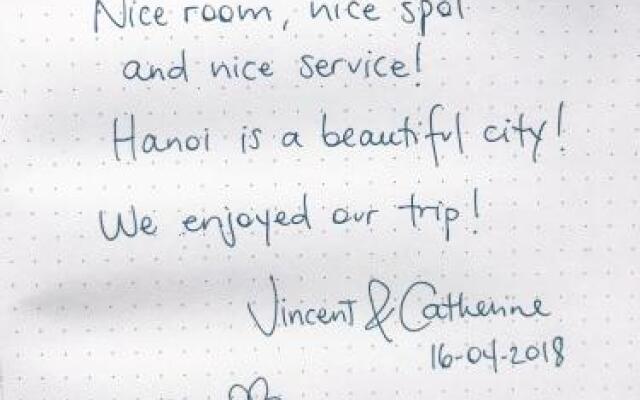 Nice room, nice spot
and nice service!
Hanoi is a beautiful city!
We enjoyed our trip!
Vincent & Catherine
16-04-2018